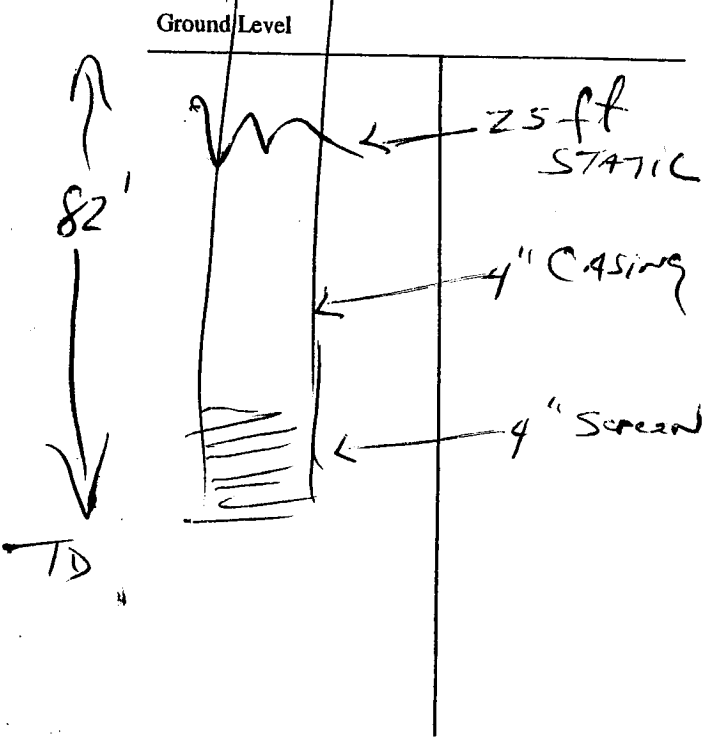 Ground Level
25 ft
STATIC
82'
4" CASING
4" Screen
TD